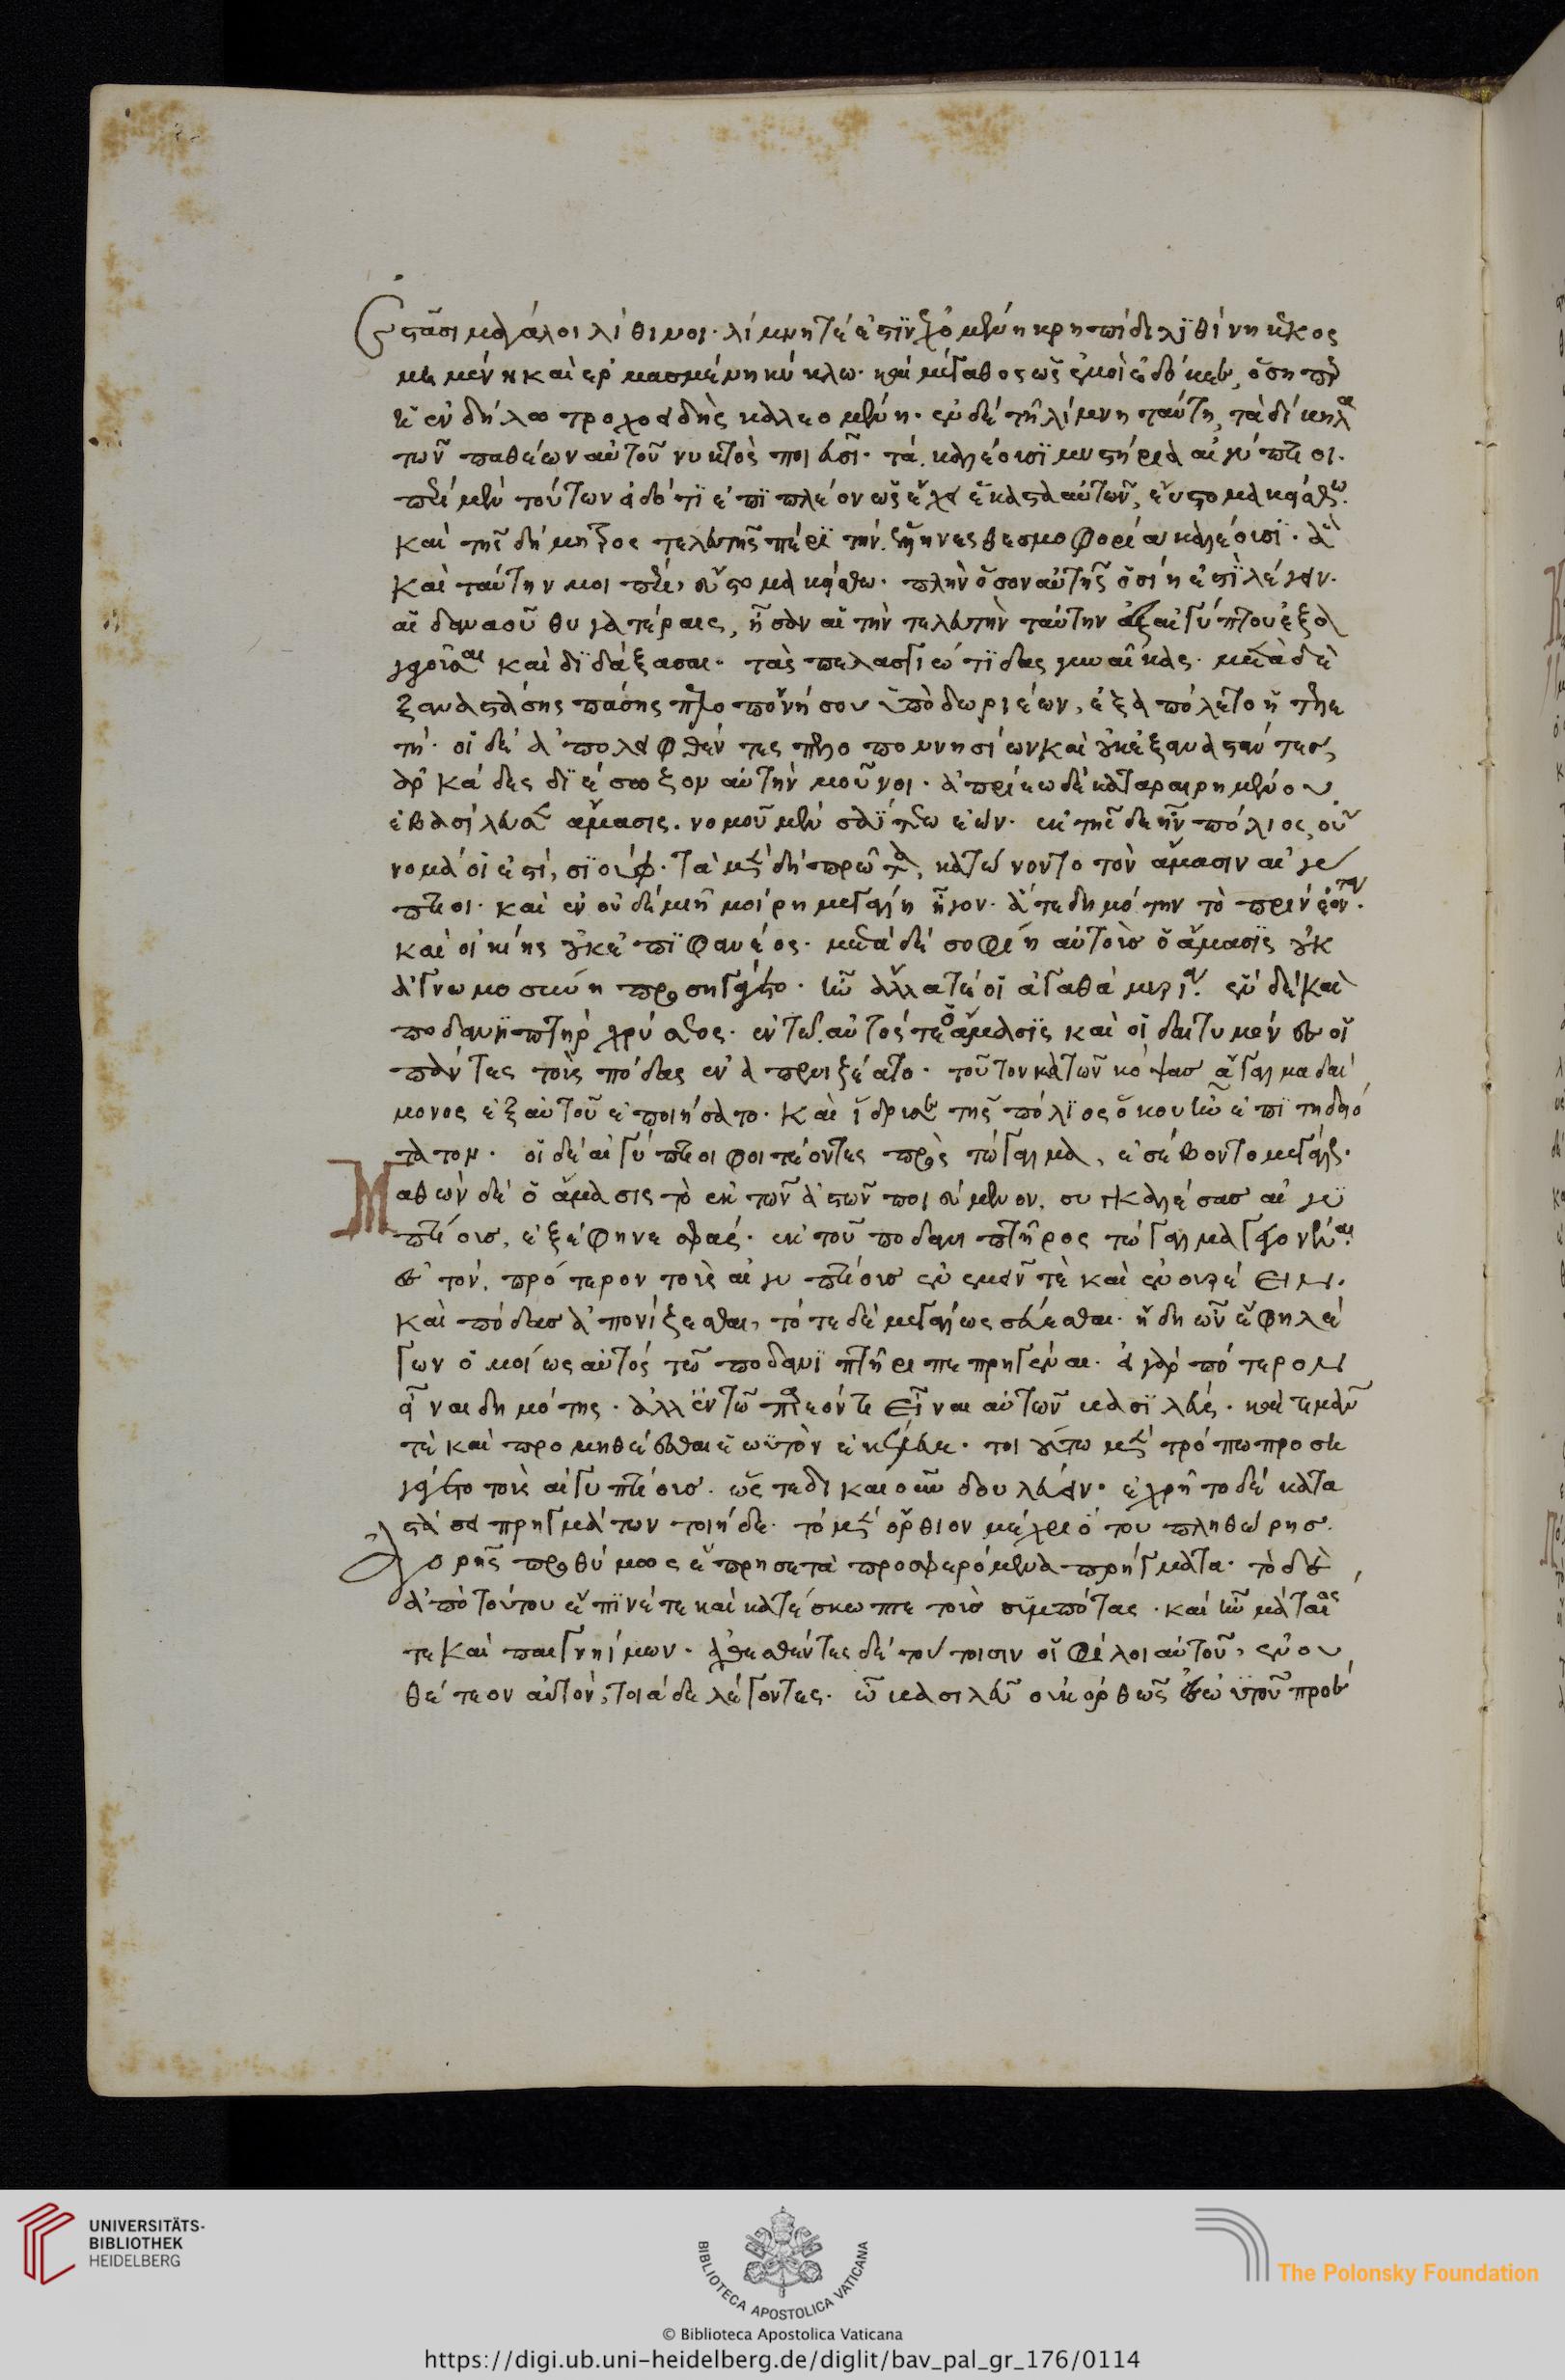 ἑστᾶσι μεγάλοι λίθινοι· λίμνη τέ ἐστιν ἐχομένη κρηπίδι λιθίνη κε κος
μημένη καὶ ἐργασμένη κύκλω· καὶ μέγαθος ὡς ἐμοὶ ἐδόκει, ὅση περ
ἡ ἐν δήλω τροχοειδὴς καλεομένη· ἐν δὲ τῇ λίμνη ταύτη, τὰ δίκηλα
τῶν παθέων αὐτοῦ νυκτὸς ποιεῦσι· τὰ καλέουσι μυστήρια αἰγύπτιοι·
περὶ μέν τούτων εἰδότι ἐπὶ πλέον ὡς ἕκαστα αὐτῶν, εὔστομα κείσθω.
καὶ τῆς δήμητρος τελετῆς πέρι τὴν ἕλληνες θεσμοφορία καλέουσι·
καὶ ταύτην μοι πέρι, εὔστομα κείσθω· πλὴν ὅσον αὐτῆς ὁσίη ἐστὶ λέγειν·
αἱ δαναοῦ θυγατέρες, ἦσαν αἱ τὴν τελετὴν ταύτην ἐξ αἰγύπτου ἐξα
γαγοῦσαι καὶ διδάξασαι τὰς πελασγιώτιδας γυναῖκας· μετὰ δὲ
ἐξαναστάσης πάσης πελοποννήσου ὑπὸ δωριέων, ἐξαπόλετο ἡ τελε
τή· οἱ δὲ ἀπολειφθέντες πελοποννησίων καὶ οὐκ ἐξαναστάντες
ἀρκάδες διέσωζον αὐτὴν μοῦνοι· ἀπρίεω δὲ καταραιρημένου
ἐβασίλευσε ἄμασις· νομοῦ μὲν σαΐτεω ἐών· ἐκ τῆς δὲ ἦν πόλιος, οὔ
νομά οἱ ἐστί, σιούφ· τὰ μὲν δὴ πρῶτα, κατώνοντο τὸν ἄμασιν αἰγύ
πτιοι· καὶ ἐν οὐδεμιῇ μοίρη μεγάλη ἦγον· ἅτε δημότην τὸ πρὶν ἐόντα·
καὶ οἰκίης οὐκ ἐπιφανέος· μετὰ δὲ σοφίη αὐτοὺς ὁ ἄμασις οὐκ
ἀγνωμοσύνη προσηγάγετο· ἦν ἄλλα τέ οἱ ἀγαθὰ μυρία· ἐν δὲ καὶ
ποδανιπτὴρ χρύσεος· ἐν τῷ αὐτός τε ὁ ἄμασις καὶ οἱ δαιτυμόνες οἱ
πάντες τοὺς πόδας ἐναπενιζέατο· τοῦτον κατ' ὦν κόψας ἄγαλμα δαί
μονος ἐξ αὐτοῦ ἐποιήσατο· καὶ ἵδρυσε τῆς πόλιος ὅκου ἦν ἐπιτηδεό
τατον· οἱ δὲ αἰγύπτιοι φοιτέοντες πρὸς τὤγαλμα, ἐσέβοντο μεγάλως·
Μαθὼν δὲ ὁ ἄμασις τὸ ἐκ τῶν ἀστῶν ποιεύμενον, συγκαλέσας αἰγυ
πτίους, ἐξέφηνε φάς· ἐκ τοῦ ποδανιπτῆρος τὤγαλμα γεγονέναι·
ἐς τὸν πρότερον τοὺς αἰγυπτίους ἐνεμεῖν τε καὶ ἐνουρέειν·
καὶ πόδας ἀπονίζεσθαι, τότε δὲ μεγάλως σέβεσθαι· ἤδη ὦν ἔφη λέ
γων ὁμοίως αὐτός τῶ ποδανιπτῆρι πεπρηγέναι· εἰ γὰρ πότερον
εἶναι δημότης· ἀλλ' ἐν τῶ παρεόντι εἶναι αὐτῶν βασιλεύς· καὶ τιμᾶν
τε καὶ προμηθέεσθαι ἑωυτὸν ἐκέλευε· τοιούτω μὲν τρόπω προση
γάγετο τοὺς αἰγυπτίους· ὥστε δικαιοῦν δουλεύειν· ἐχρῆτο δὲ κατα
στάσι πρηγμάτων τοιῇδε· τὸ μὲν ὄρθριον μέχρι ὅτου πληθώρης
ἀγορῆς προθύμως ἔπρησσε τὰ προσφερόμενα πρήγματα· τὸ δὲ
ἀπὸ τούτου ἔπινέ τε καὶ κατέσκωπτε τοὺς συμπότας· καὶ ἦν μάταιός
τε καὶ παιγνιήμων· ἀχθεσθέντες δὲ τούτοισιν οἱ φίλοι αὐτοῦ, ἐνου
θέτεον αὐτὸν, τοιάδε λέγοντες· ὦ βασιλεῦ οὐκ ὀρθῶς σεωυτοῦ προέ
UNIVERSITÄTS-
BIBLIOTHEK
HEIDELBERG
BIBLIOTECA APOSTOLICA VATICANA
The Polonsky Foundation
© Biblioteca Apostolica Vaticana
https://digi.ub.uni-heidelberg.de/diglit/bav_pal_gr_176/0114